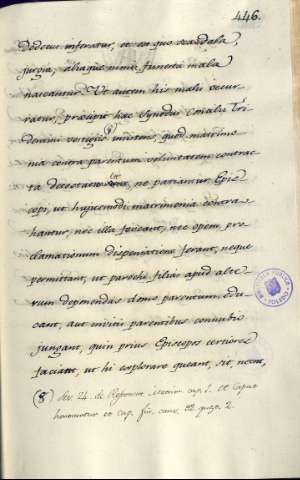 446.
Dedecus inferatur, et ex quo scandala,
jurgia, aliaque nimis funesta mala
nascantur. Ut autem his malis occur-
ratur, præcipit hæc Synodus Concilii Tri-
dentini vestigiis inniteus, quod matrimo-
nia contra parentum voluntatem contrac-
ta detestatur, ne patiantur Epis-
copi, ut hujusmodi matrimonia contra-
hantur, nec illa foveant, nec opem, pro-
clamationum dispensatione ferant, neque
permittant, ut parochi filias apud alte-
rum degendas domo parentum, edu-
cant, aut invitis parentibus connubio
jungant, quin prius Episcopos certiores
faciant, ut hi explorare queant, sit, necne,
(8) Ses. 24. de Reform. cap. 1. et Caput
honorantur et cap. fin. caus. 32 quæs. 2.
BIBLIOTECA PUBLICA
TOLEDO